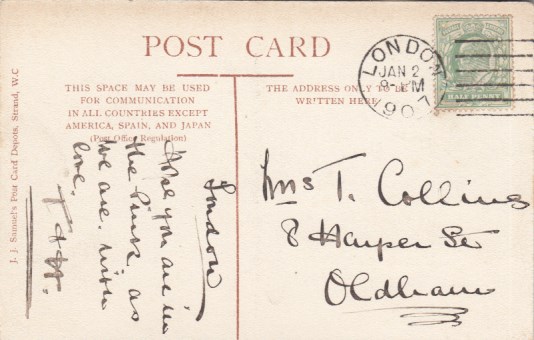 POST CARD
THIS SPACE MAY BE USED
FOR COMMUNICATION
IN ALL COUNTRIES EXCEPT
AMERICA, SPAIN, AND JAPAN
(Post Office Regulation)
THE ADDRESS ONLY TO BE
WRITTEN HERE
LONDON
JAN 2
1907
HALF PENNY
London
Hope you are in
the Pink as
we are. With
love.
Mrs T. Collins
8 Harper St
Oldham
J. J. Samuel's Post Card Depots, Strand, W.C